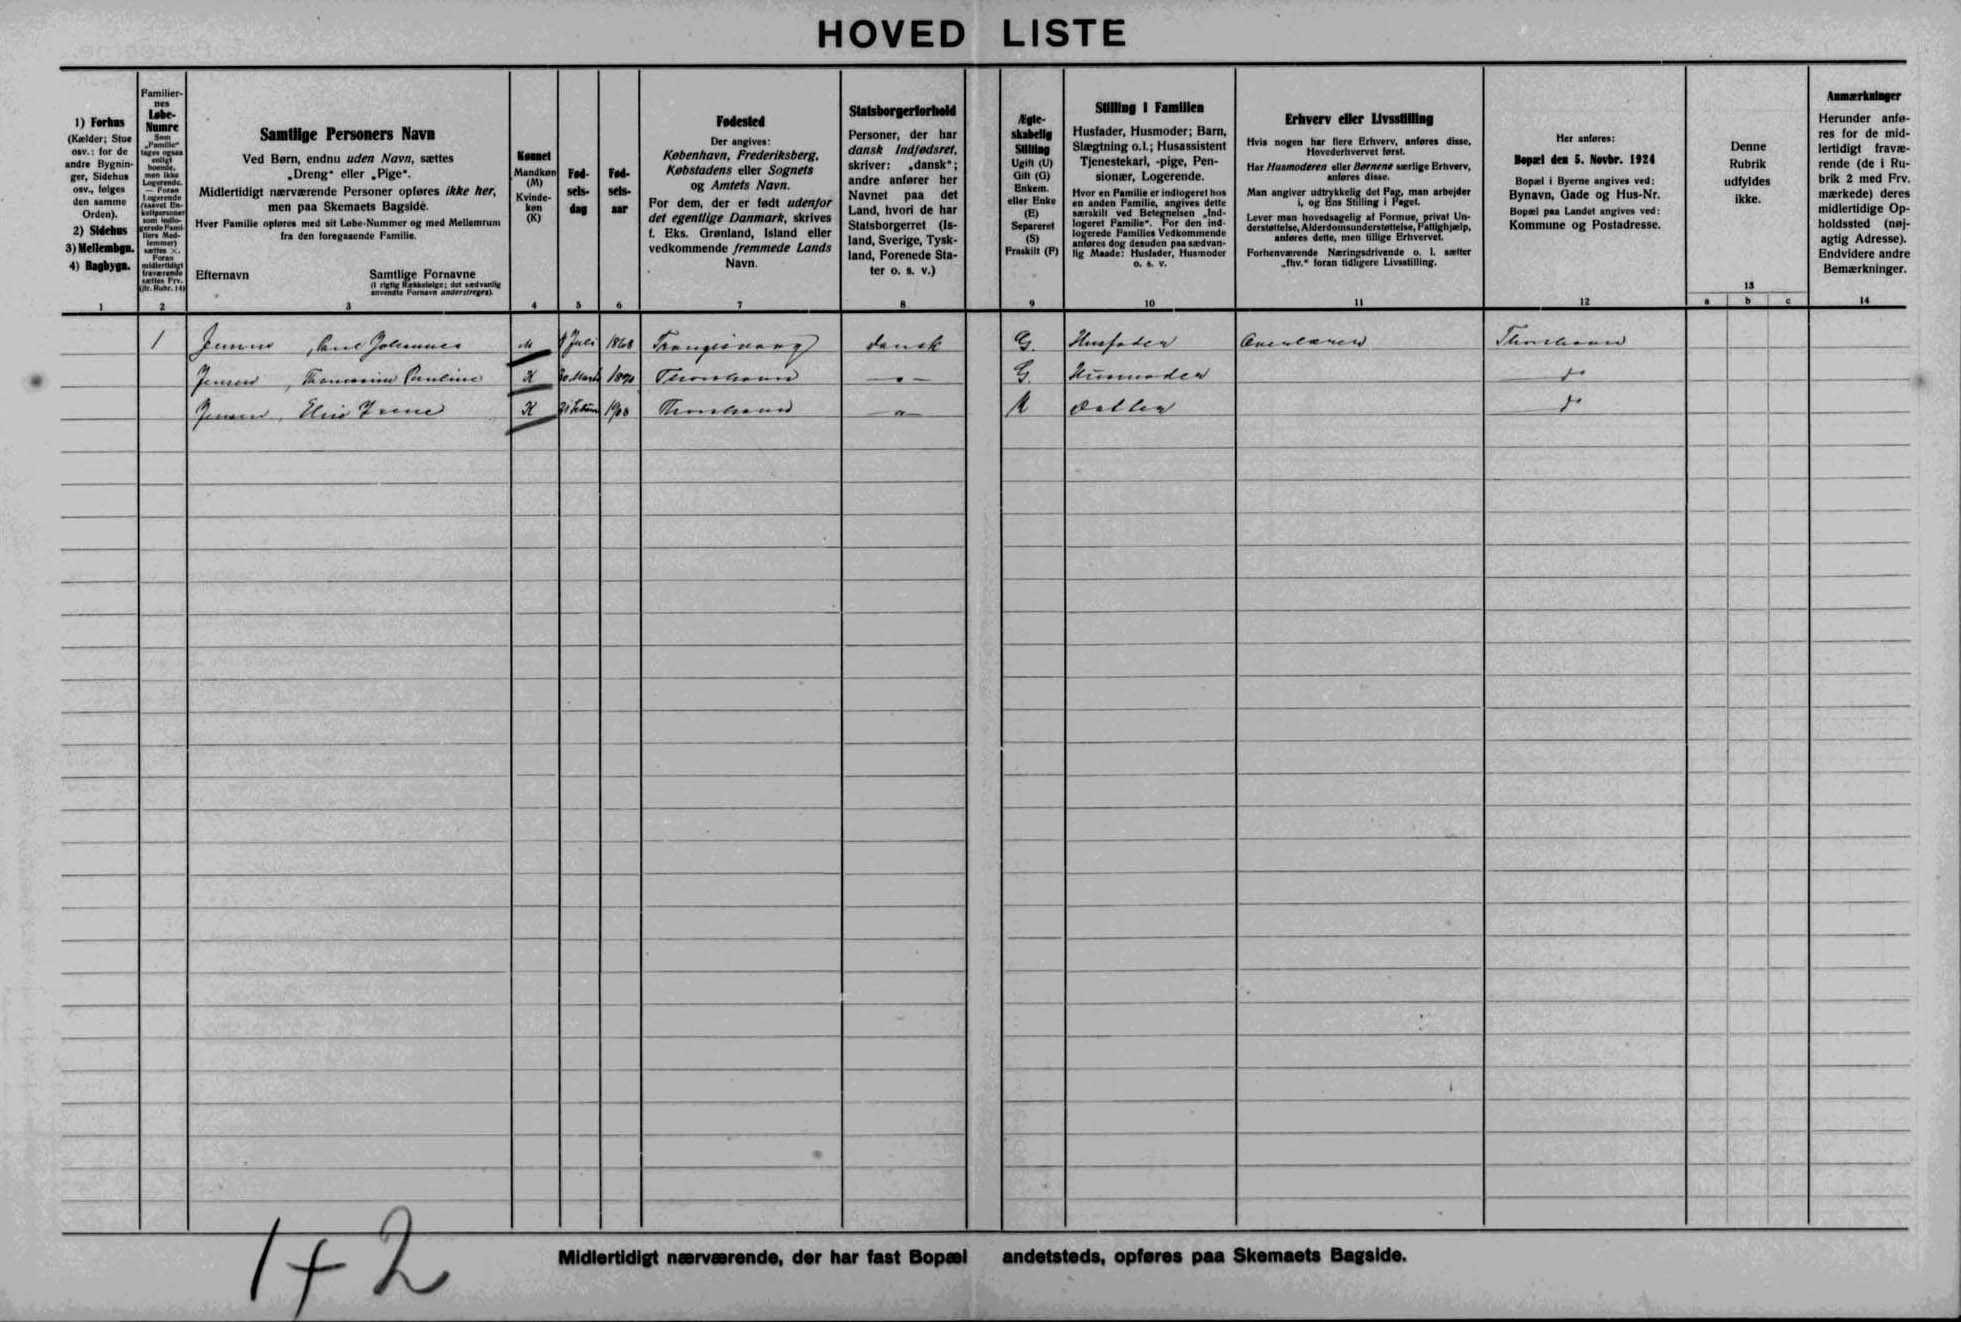 HOVED LISTE
1) Forhus
(Kælder; Stue
osv.: for de
andre Bygnin-
ger, Sidehus
osv., følges
den samme
Orden).
2) Sidehus
3) Mellembgn.
4) Bagbygn.
1
Familier-
nes
Løbe-
Numre
Som
„Familie“
tages ogsaa
enligt
boende,
men ikke
Logerende.
— Foran
Logerende
sættes ×.
Foran
midlertidigt
fraværende
sættes Frv.
(jfr. Rubr. 14)
2
Samtlige Personers Navn
Ved Børn, endnu uden Navn, sættes
„Dreng“ eller „Pige“.
Midlertidigt nærværende Personer opføres ikke her,
men paa Skemaets Bagside.
Hver Familie opføres med sit Løbe-Nummer og med Mellemrum
fra den foregaaende Familie.
Efternavn Samtlige Fornavne
(i rigtig Rækkefølge; det sædvanlig
anvendte Fornavn understreges).
3
Kønnet
Mandkøn
(M)
Kvinde-
køn
(K)
4
Fød-
sels-
dag
5
Fød-
sels-
aar
6
Fødested
Der angives:
København, Frederiksberg,
Købstadens eller Sognets
og Amtets Navn.
For dem, der er født udenfor
det egentlige Danmark, skrives
f. Eks. Grønland, Island eller
vedkommende fremmede Lands
Navn.
7
Statsborgerforhold
Personer, der har
dansk Indfødsret,
skriver: „dansk“;
andre anfører her
Navnet paa det
Land, hvori de har
Statsborgerret (Is-
land, Sverige, Tysk-
land, Forenede Sta-
ter o. s. v.)
8
Ægte-
skabelig
Stilling
Ugift (U)
Gift (G)
Enkem.
eller Enke
(E)
Separeret
(S)
Fraskilt (F)
9
Stilling i Familien
Husfader, Husmoder; Barn,
Slægtning o.l.; Husassistent
Tjenestekarl, -pige, Pen-
sionær, Logerende.
Hvor en Familie er indlogeret hos
en anden Familie, angives dette
særskilt ved Betegnelsen „Ind-
logeret Familie“. For den ind-
logerede Families Vedkommende
anføres dog desuden paa sædvan-
lig Maade: Husfader, Husmoder
o. s. v.
10
Erhverv eller Livsstilling
Hvis nogen har flere Erhverv, anføres disse,
Hovederhvervet først.
Har Husmoderen eller Børnene særlige Erhverv,
anføres disse.
Man angiver udtrykkelig det Fag, man arbejder
i, og Ens Stilling i Faget.
Lever man hovedsagelig af Formue, privat Un-
derstøttelse, Alderdomsunderstøttelse, Fattighjælp,
anføres dette, men tillige Erhvervet.
Forhenværende Næringsdrivende o. l. sætter
„fhv.“ foran tidligere Livsstilling.
11
Her anføres:
Bopæl den 5. Novbr. 1924
Bopæl i Byerne angives ved:
Bynavn, Gade og Hus-Nr.
Bopæl paa Landet angives ved:
Kommune og Postadresse.
12
Denne
Rubrik
udfyldes
ikke.
13
a b c
Anmærkninger
Herunder anfø-
res for de mid-
lertidigt fravæ-
rende (de i Ru-
brik 2 med Frv.
mærkede) deres
midlertidige Op-
holdssted (nøj-
agtig Adresse).
Endvidere andre
Bemærkninger.
14
1 Jensen, Carl Johannes M Juli 1868 Trangisvaag dansk G. Husfader Overlærer Thorshavn
Jensen, Pauline K 1890 Thorshavn — " — G. Husmoder do
Jensen, Irene K Thorshavn — " — Datter do
1 + 2
Midlertidigt nærværende, der har fast Bopæl andetsteds, opføres paa Skemaets Bagside.